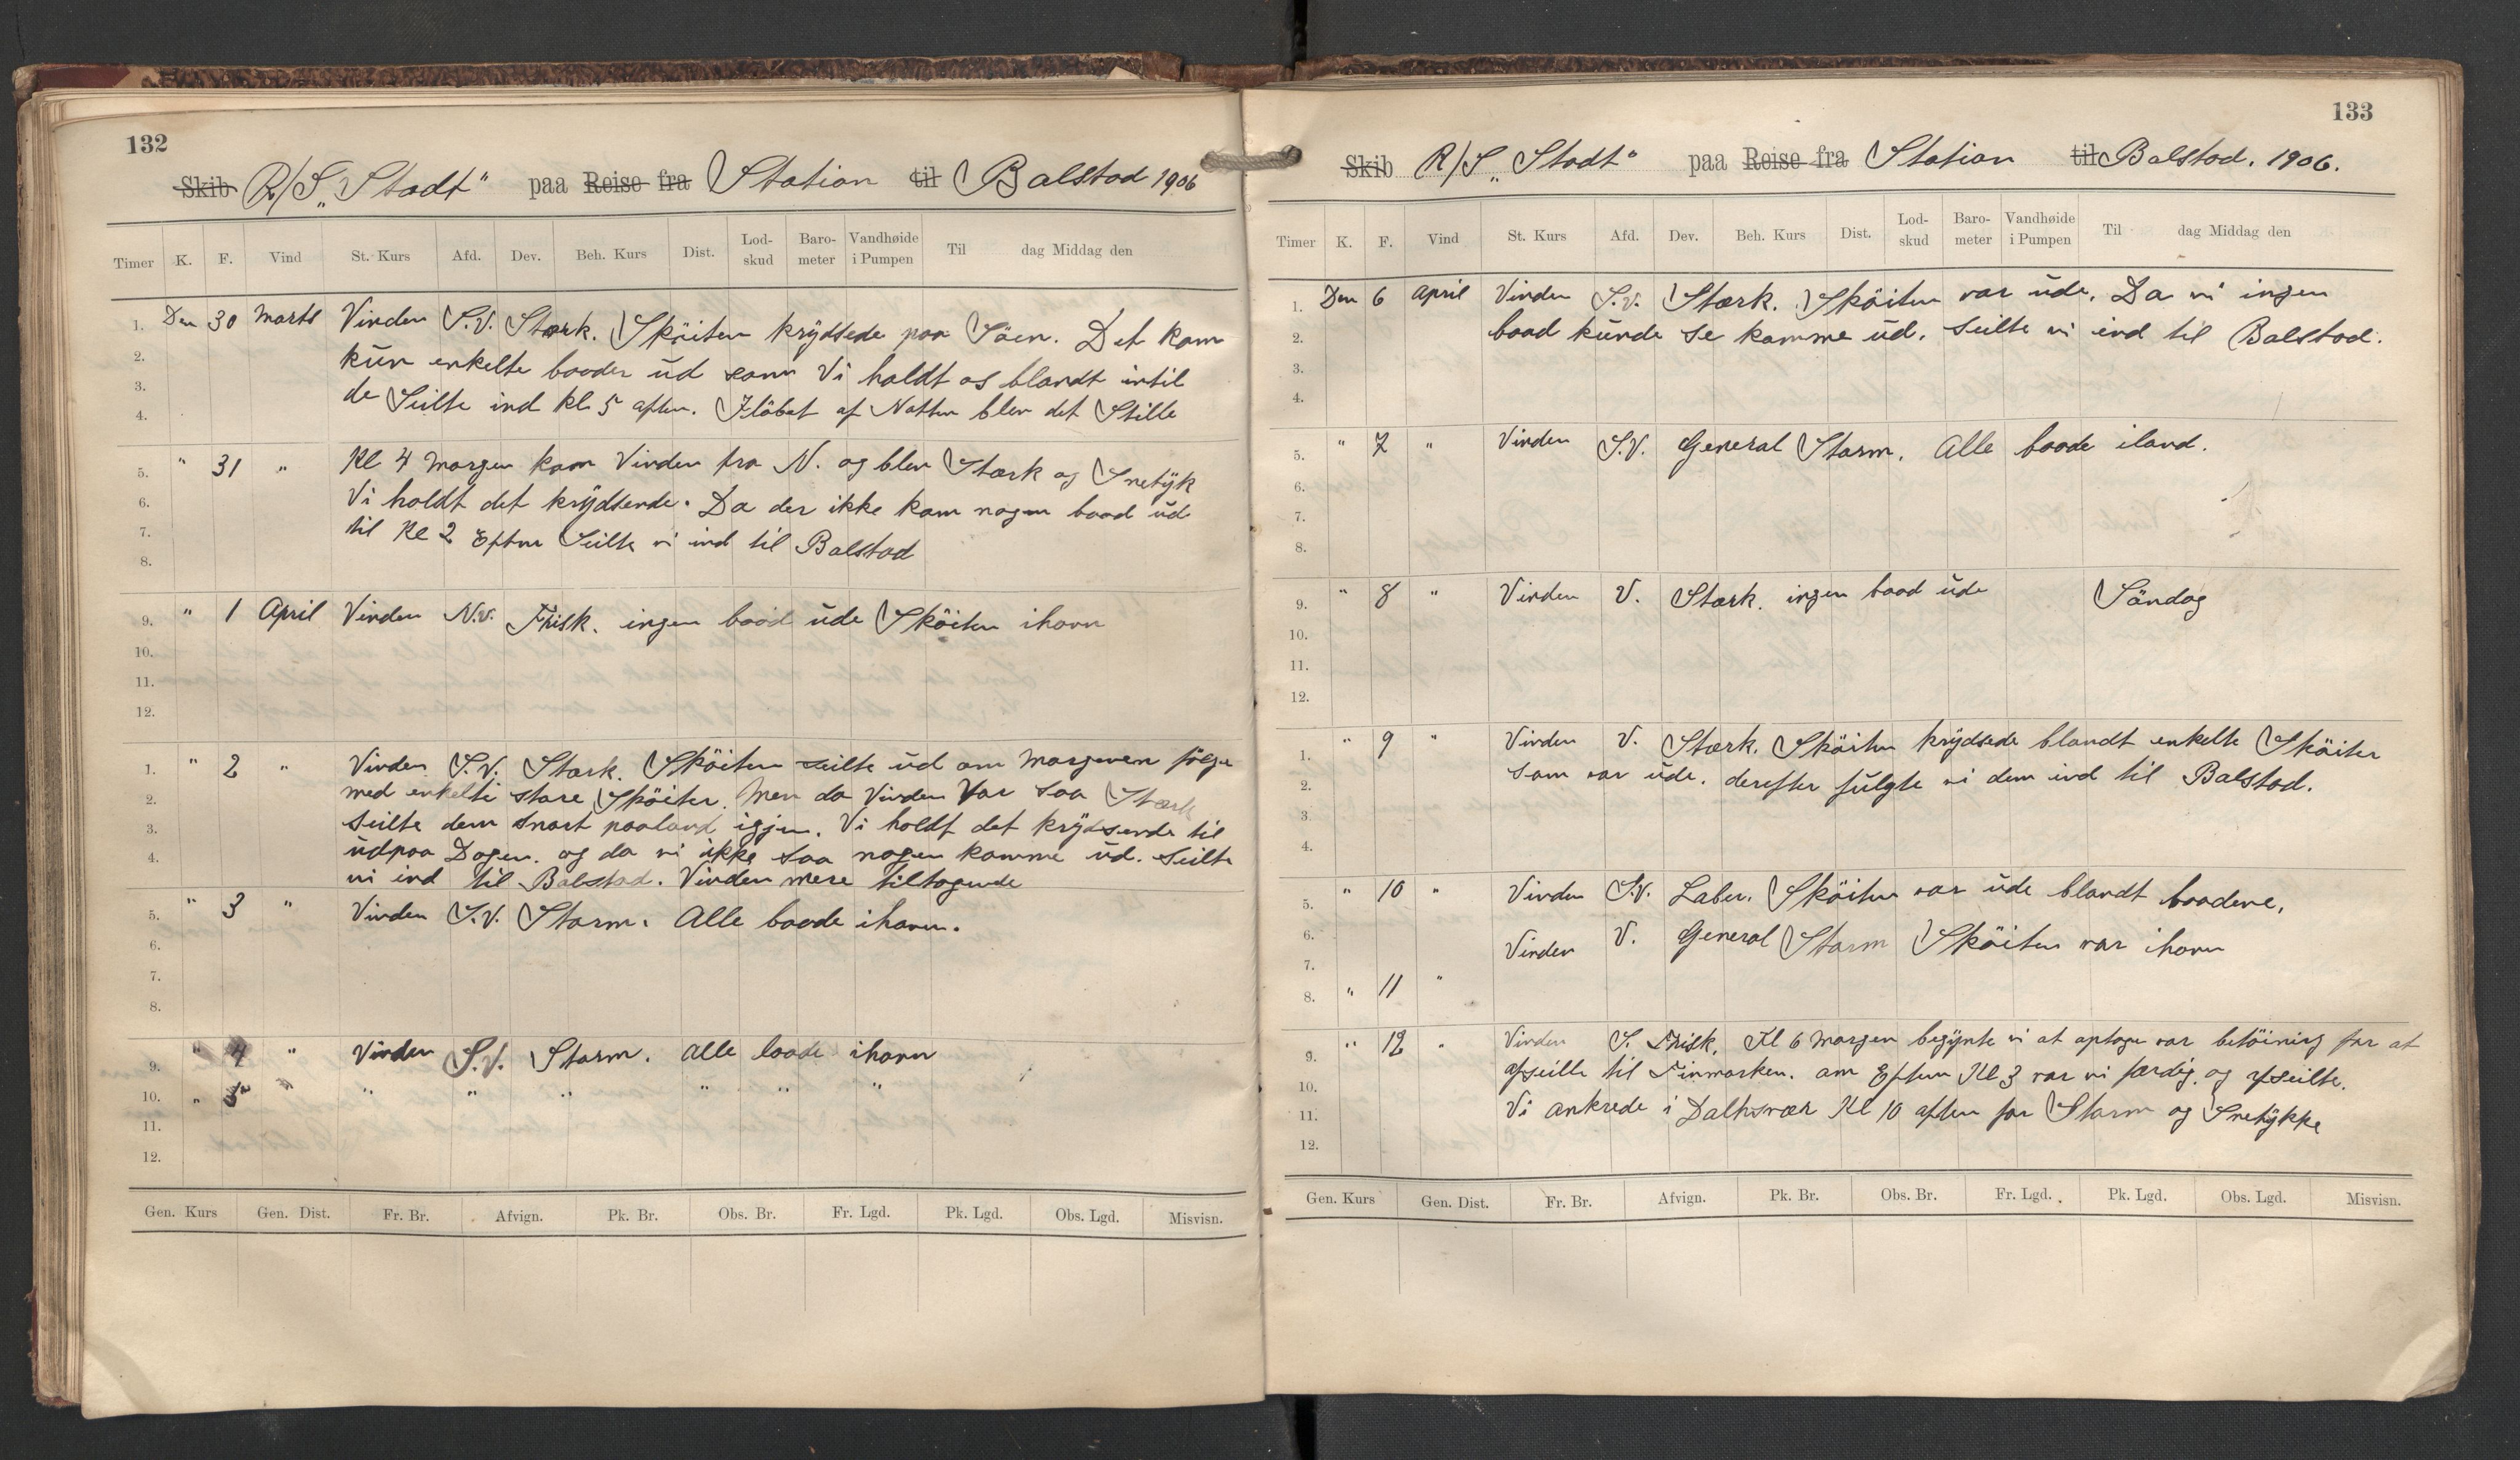 132
Skib R/S „Stadt" paa Reise fra Station til Balstad 1906
Timer K. F. Vind St. Kurs Afd. Dev. Beh. Kurs Dist. Lod-skud Baro-meter Vandhøide i Pumpen Til dag Middag den
1. Den 30 Marts Vinden S.V. Stærk. Sköiten krydsede paa Söen. Det kom
2. kun enkelte baader ud som Vi holdt os blandt intil
3. de Seilte ind kl 5 aften. Iløbet af Natten blev det Stille
4.
5. " 31 " Kl 4 Morgen kom Vinden fra N. og blev Stærk og Snetyk
6. Vi holdt det krydsende. Da der ikke kom nogen baad ud
7. til Kl 2 Eftm Seilte vi ind til Balstad
8.
9. " 1 April Vinden N.V. Frisk. ingen baad ude Sköiten ihavn
10.
11.
12.
1. " 2 " Vinden S.V. Stærk. Sköiten seilte ud om Morgenen følge
2. med enkelte store Sköiter. Men da Vinden Var saa Stærk
3. Seilte dem snart paaland igjen. Vi holdt det krydsende til
4. udpaa Dagen. og da vi ikke saa nogen komme ud. Seilte
vi ind til Balstad. Vinden mere tiltagende
5. " 3 " Vinden S.V. Storm. Alle baade ihavn.
6.
7.
8.
9. " 4 " Vinden S.V. Storm. Alle baade ihavn
10. " 5 " " " " " " "
11.
12.
Gen. Kurs Gen. Dist. Fr. Br. Afvign. Pk. Br. Obs. Br. Fr. Lgd. Pk. Lgd. Obs. Lgd. Misvisn.
133
Skib R/S „Stadt" paa Reise fra Station til Balstad. 1906.
Timer K. F. Vind St. Kurs Afd. Dev. Beh. Kurs Dist. Lod-skud Baro-meter Vandhøide i Pumpen Til dag Middag den
1. Den 6 April Vinden S.V. Stærk. Sköiten var ude. Da vi ingen
2. baad kunde se komme ud. Seilte vi ind til Balstad.
3.
4.
5. " 7 " Vinden S.V. General Storm. Alle baade iland.
6.
7.
8.
9. " 8 " Vinden V. Stærk. ingen baad ude Söndag
10.
11.
12.
1. " 9 " Vinden V. Stærk. Sköiten krydsede blandt enkelte Sköiter
2. som var ude. derefter fulgte vi dem ind til Balstad.
3.
4.
5. " 10 " Vinden S.V. Laber. Sköiten var ude blandt baadene.
6. Vinden V. General Storm Sköiten var ihavn
7.
8. " 11 "
9. " 12 " Vinden S. Frisk. Kl 6 Morgen begynte vi at optage vor betöining for at
10. afseille til Finmarken. om Eftem Kl 3 var vi færdig. og afseilte.
11. Vi ankrede i Kl 10 aften for Storm og Snetykke
12.
Gen. Kurs Gen. Dist. Fr. Br. Afvign. Pk. Br. Obs. Br. Fr. Lgd. Pk. Lgd. Obs. Lgd. Misvisn.